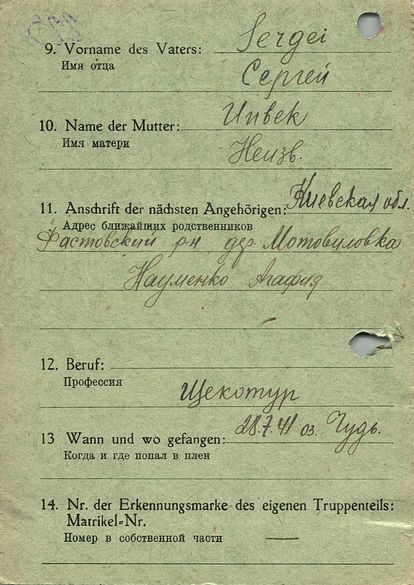 9. Vorname des Vaters: Sergei
Имя отца Сергей
10. Name der Mutter: Unbek
Имя матери Неизв.
11. Anschrift der nächsten Angehörigen: Киевская обл.
Адрес ближайших родственников
Фастовский р-н дер. Мотовиловка
Науменко Агафия
12. Beruf:
Профессия
Щекотур
13 Wann und wo gefangen: 28.7.41 оз. Чудь.
Когда и где попал в плен
14. Nr. der Erkennungsmarke des eigenen Truppenteils:
Matrikel-Nr.
Номер в собственной части —